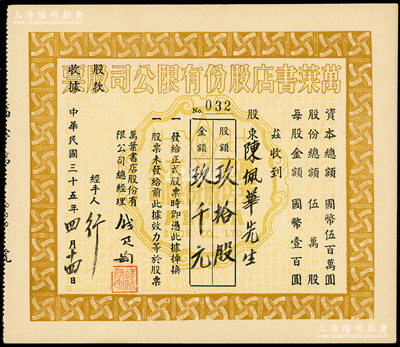 上海陽明拍賣
www.shymauction.com
萬葉書店股份有限公司股票
No. 032
資本總額 國幣伍百萬圓
股份總額 伍萬股
每股金額 國幣壹百圓
茲收到
股東陳佩華先生
股額 玖拾股
金額 玖千元
一 發給正式股票時即憑此據掉換
一 股票未發給前此據效力等於股票
萬葉書店股份有限公司總經理
經手人
中華民國三十五年四月十四日
股款收據